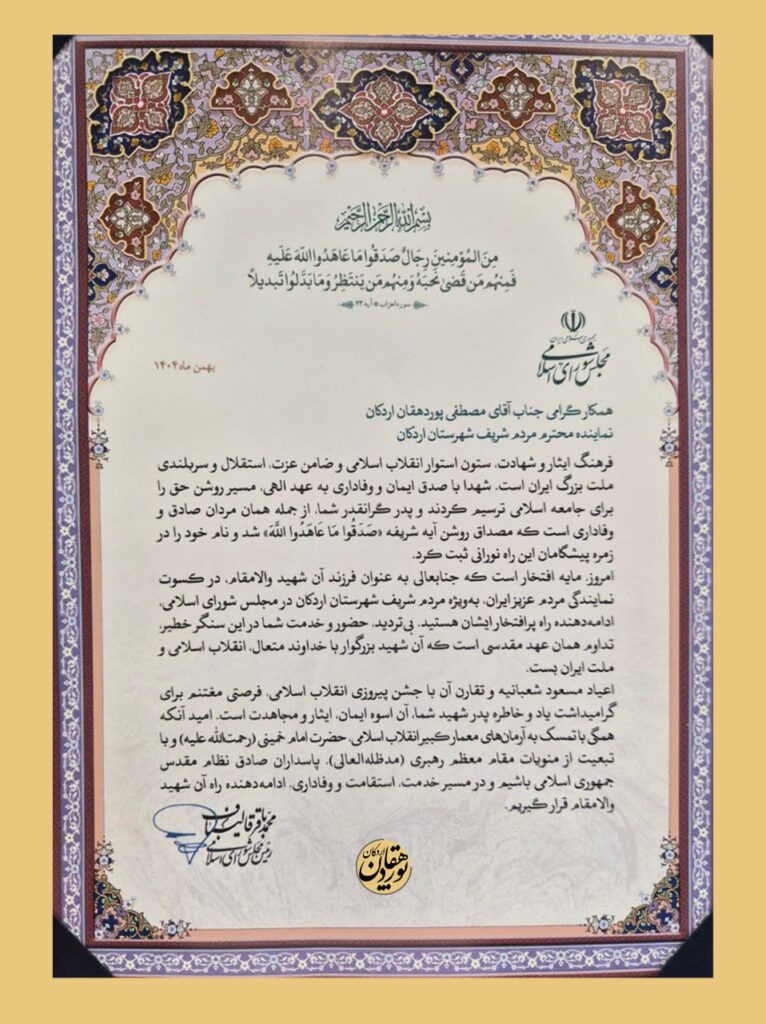 بِسْمِ اللهِ الرَّحْمٰنِ الرَّحِيْمِ
مِنَ المُؤمِنينَ رِجالٌ صَدَقُوا مَا عَاهَدُوا اللهَ عَلَيهِ
فَمِنهُم مَن قَضىٰ نَحبَهُ وَمِنهُم مَن يَنتَظِرُ وَما بَدَّلُوا تَبديلاً
سوره احزاب آیه ۲۳
جمهوری اسلامی ایران
مجلس شورای اسلامی
بهمن ماه ۱۴۰۴
همکار گرامی جناب آقای مصطفی پوردهقان اردکان
نماینده محترم مردم شریف شهرستان اردکان
فرهنگ ایثار و شهادت، ستون استوار انقلاب اسلامی و ضامن عزت، استقلال و سربلندی
ملت بزرگ ایران است. شهدا با صدق ایمان و وفاداری به عهد الهی، مسیر روشن حق را
برای جامعه اسلامی ترسیم کردند و پدر گرانقدر شما، از جمله همان مردان صادق و
وفاداری است که مصداق روشن آیه شریفه «صَدَقُوا مَا عَاهَدُوا اللَّهَ» شد و نام خود را در
زمره پیشگامان این راه نورانی ثبت کرد.
امروز، مایه افتخار است که جنابعالی به عنوان فرزند آن شهید والامقام، در کسوت
نمایندگی مردم عزیز ایران، به‌ویژه مردم شریف شهرستان اردکان در مجلس شورای اسلامی،
ادامه‌دهنده راه پرافتخار ایشان هستید. بی‌تردید، حضور و خدمت شما در این سنگر خطیر،
تداوم همان عهد مقدسی است که آن شهید بزرگوار با خداوند متعال، انقلاب اسلامی و
ملت ایران بست.
اعیاد مسعود شعبانیه و تقارن آن با جشن پیروزی انقلاب اسلامی، فرصتی مغتنم برای
گرامیداشت یاد و خاطره پدر شهید شما، آن اسوه ایمان، ایثار و مجاهدت است. امید آنکه
همگی با تمسک به آرمان‌های معمار کبیر انقلاب اسلامی، حضرت امام خمینی (رحمت‌الله علیه) و با
تبعیت از منویات مقام معظم رهبری (مدظله‌العالی)، پاسداران صادق نظام مقدس
جمهوری اسلامی باشیم و در مسیر خدمت، استقامت و وفاداری، ادامه‌دهنده راه آن شهید
والامقام قرار گیریم.
محمدباقر قالیباف
رئیس مجلس شورای اسلامی
پوردهقان اردکان